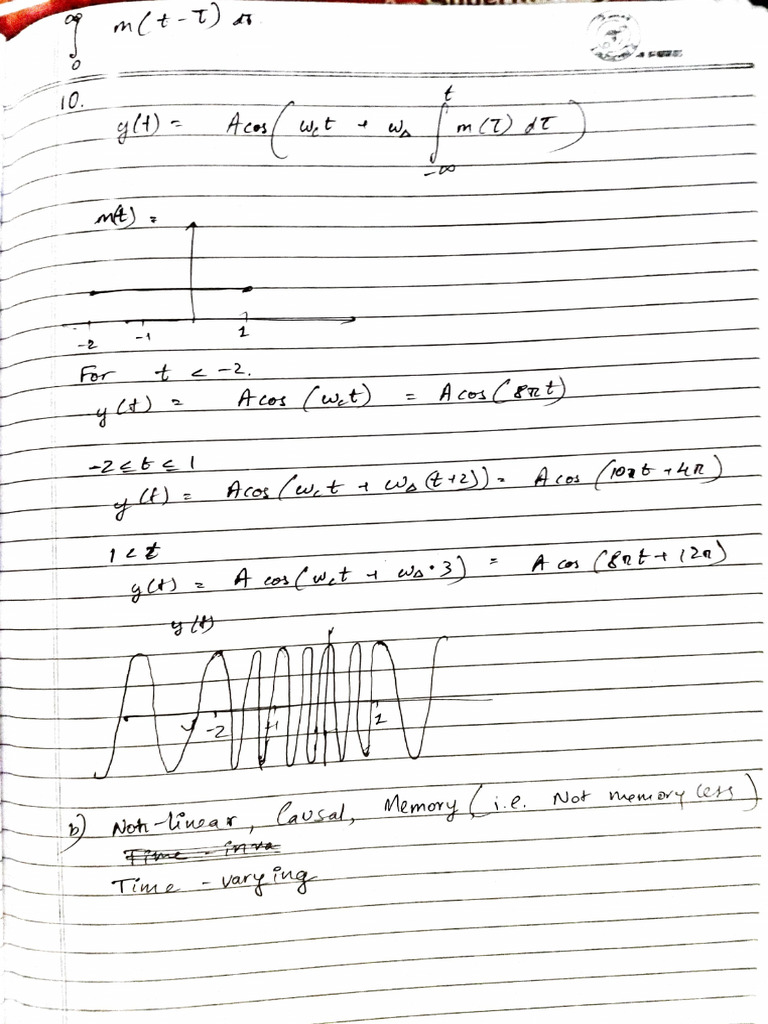 ∞
∫ m(t-τ) dτ
0
10.
y(t) = A cos( ω_c t + ω_Δ ∫_{-∞}^{t} m(τ) dτ )
m(t) =
-2 -1 1
For t < -2.
y(t) = A cos (ω_c t) = A cos(8πt)
-2 ≤ t ≤ 1
y(t) = A cos(ω_c t + ω_Δ (t+2)) = A cos (10πt + 4π)
1 < t
y(t) = A cos(ω_c t + ω_Δ · 3) = A cos (8πt + 12π)
y(t)
-2 -1 1
b) Non-linear, Causal, Memory (i.e. Not memory less)
Time - inva
Time - varying